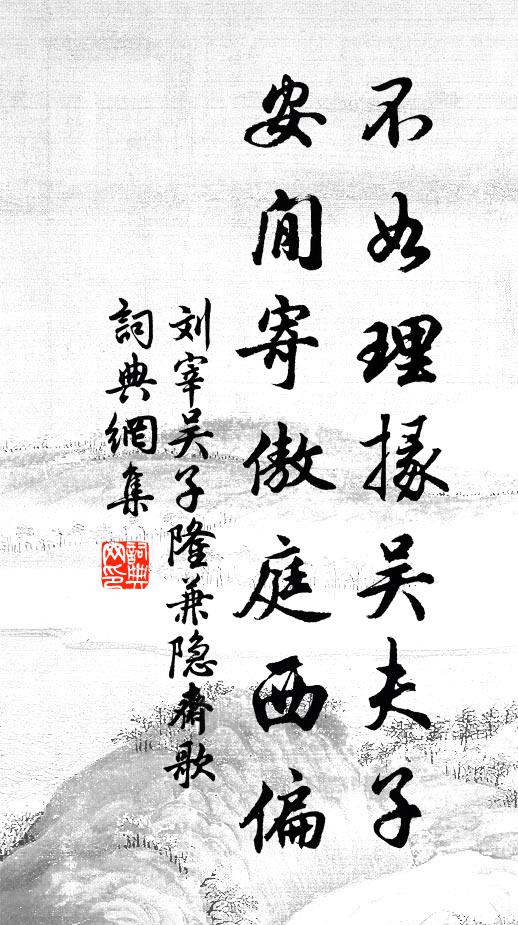 不如理掾吴夫子
安閒寄傲庭西偏
刘宰吴子隆兼隐齋歌
詞典網集